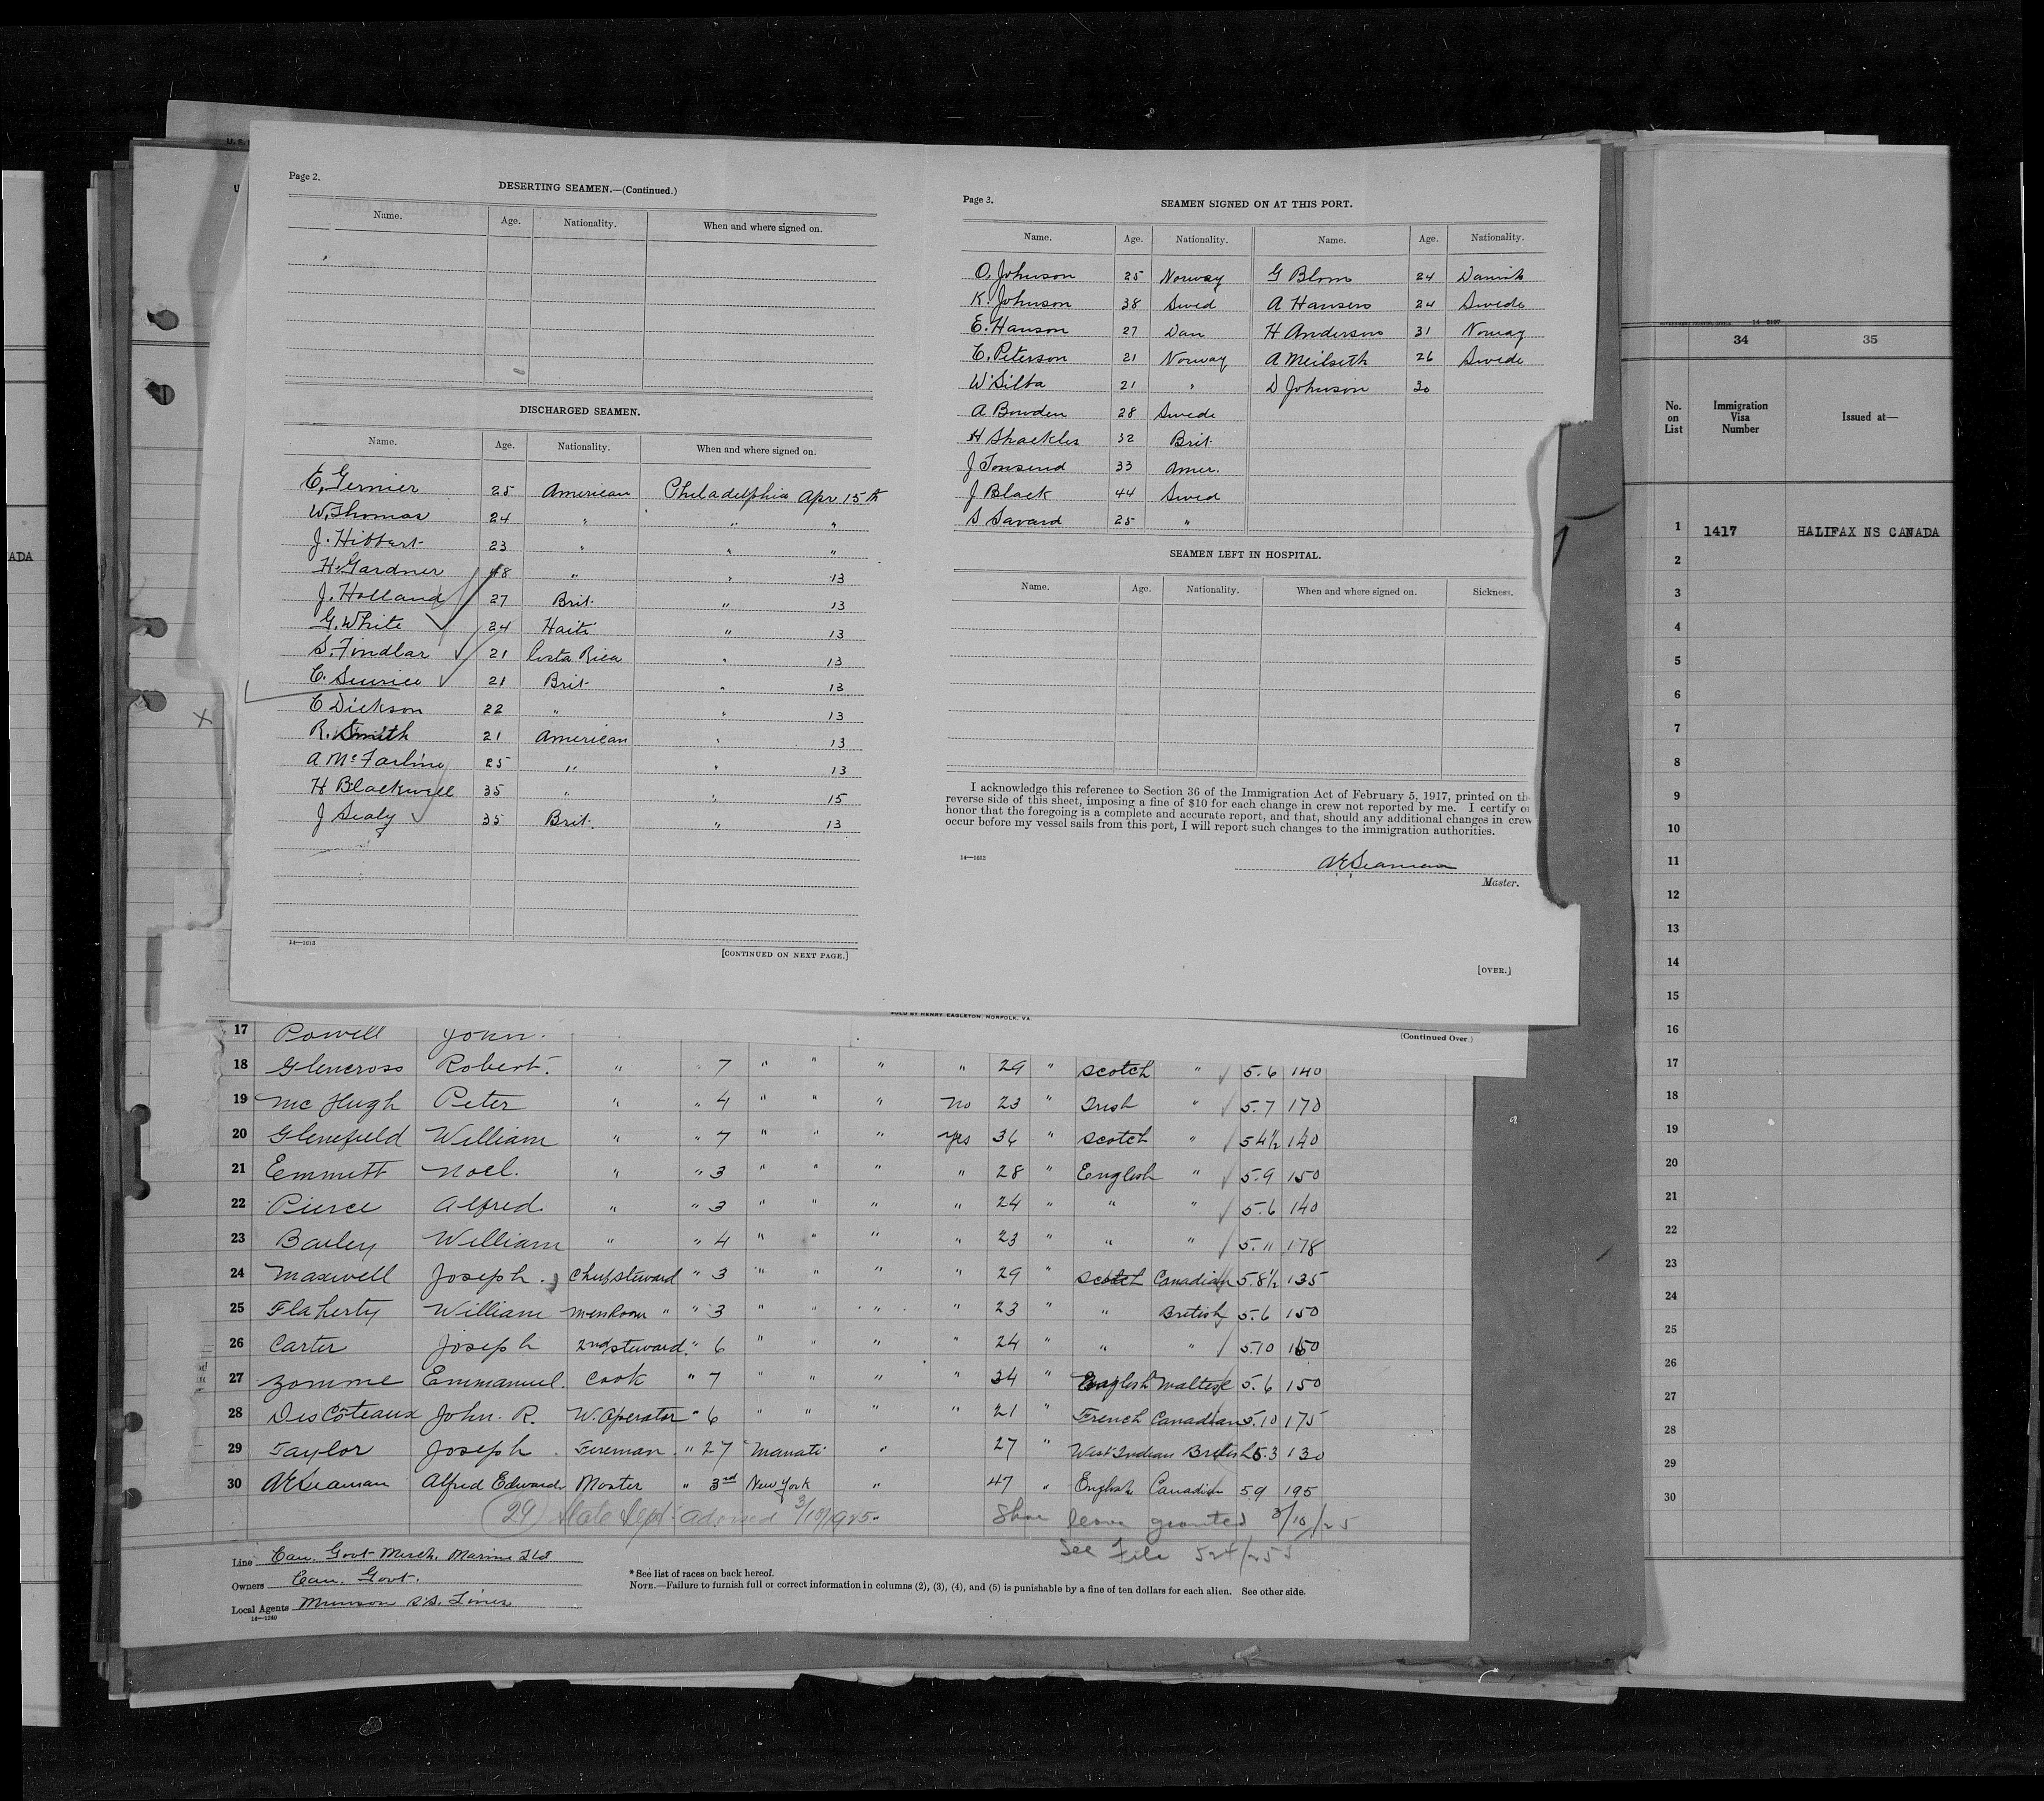 Page 2.
DESERTING SEAMEN.—(Continued.)
Name. Age. Nationality. When and where signed on.
DISCHARGED SEAMEN.
Name. Age. Nationality. When and where signed on.
E, Gernier 25 American Philadelphia Apr 15th
W. Thomas 24 " " "
J. Hibbert 23 " " "
H. Gardner 48 " " 13
J. Holland 27 Brit. " 13
G. White 24 Haiti " 13
S. Findlar 21 Costa Rica " 13
C. 21 Brit. " 13
C Dickson 22 " " 13
R. Smith 21 American " 13
A McFarline 25 " " 13
H Blackwell 35 " " 15
J Sealy 35 Brit. " 13
14—1613
[CONTINUED ON NEXT PAGE.]
Page 3.
SEAMEN SIGNED ON AT THIS PORT.
Name. Age. Nationality. Name. Age. Nationality.
O. Johnson 25 Norway G Blom 24 Danish
K. Johnson 38 Swed A Hansen 24 Swede
E. Hanson 27 Dan H Anderson 31 Norway
E. Peterson 21 Norway A Meilseth 26 Swede
W Silta 21 " D Johnson 30
A Bowden 28 Swede
H Shackles 32 Brit.
J Tonsend 33 Amer.
J Black 44 Swed
S Savard 25 "
SEAMEN LEFT IN HOSPITAL.
Name. Age. Nationality. When and where signed on. Sickness.
I acknowledge this reference to Section 36 of the Immigration Act of February 5, 1917, printed on th
reverse side of this sheet, imposing a fine of $10 for each change in crew not reported by me. I certify on
honor that the foregoing is a complete and accurate report, and that, should any additional changes in crew
occur before my vessel sails from this port, I will report such changes to the immigration authorities.
14—1613
AE Seaman
Master.
[OVER.]
SOLD BY HENRY EAGLETON, NORFOLK, VA.
(Continued Over)
17 Powell John.
18 Glencross Robert. " " 7 " " " " 29 " Scotch " 5.6 140
19 McHugh Peter " " 4 " " " No 23 " Irish " 5.7 170
20 Glenefield William " " 7 " " " yes 36 " Scotch " 5 4½ 140
21 Emmett Noel. " " 3 " " " " 28 " English " 5.9 150
22 Pierce Alfred. " " 3 " " " " 24 " " " 5.6 140
23 Barley William " " 4 " " " " 23 " " " 5.11 178
24 Maxwell Joseph. Chief steward " 3 " " " " 29 " Scotch Canadian 5.8½ 135
25 Flaherty William MessRoom " " 3 " " " " 23 " " British 5.6 150
26 Carter Joseph 2nd steward. " 6 " " " " 24 " " " 5.10 150
27 Zomme Emmanuel. Cook " 7 " " " " 34 " English Maltese 5.6 150
28 DesCôteaux John. R. W. Operator " 6 " " " " 21 " French Canadian 5.10 175
29 Taylor Joseph Fireman " 27 Manati " 27 " West Indian British 5.3 130
30 AE Seaman Alfred Edward Master " 3rd New York " 47 " English Canadian 5.9 195
(29) State Dept. advised 3/10/1925.
Shore leave granted 3/10/25
See File 524/255
Line Can. Govt Merch. Marine Ltd
Owners Can. Govt.
Local Agents Munson S.S. Lines
14—1240
* See list of races on back hereof.
NOTE.—Failure to furnish full or correct information in columns (2), (3), (4), and (5) is punishable by a fine of ten dollars for each alien. See other side.
34 35
No. on List Immigration Visa Number Issued at—
1 1417 HALIFAX NS CANADA
2
3
4
5
6
7
8
9
10
11
12
13
14
15
16
17
18
19
20
21
22
23
24
25
26
27
28
29
30
ADA